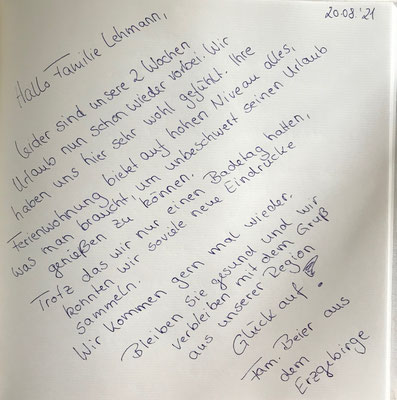 20.08.'21
Hallo Familie Lehmann,
leider sind unsere 2 Wochen
Urlaub nun schon wieder vorbei. Wir
haben uns hier sehr wohl gefühlt. Ihre
Ferienwohnung bietet auf hohen Niveau alles,
was man braucht, um unbeschwert seinen Urlaub
genießen zu können.
Trotz das wir nur einen Badetag hatten,
konnten wir soviele neue Eindrücke
sammeln.
Wir kommen gern mal wieder.
Bleiben sie gesund und wir
verbleiben mit dem Gruß
aus unserer Region
Glück auf!
Fam. Beier aus
dem
Erzgebirge